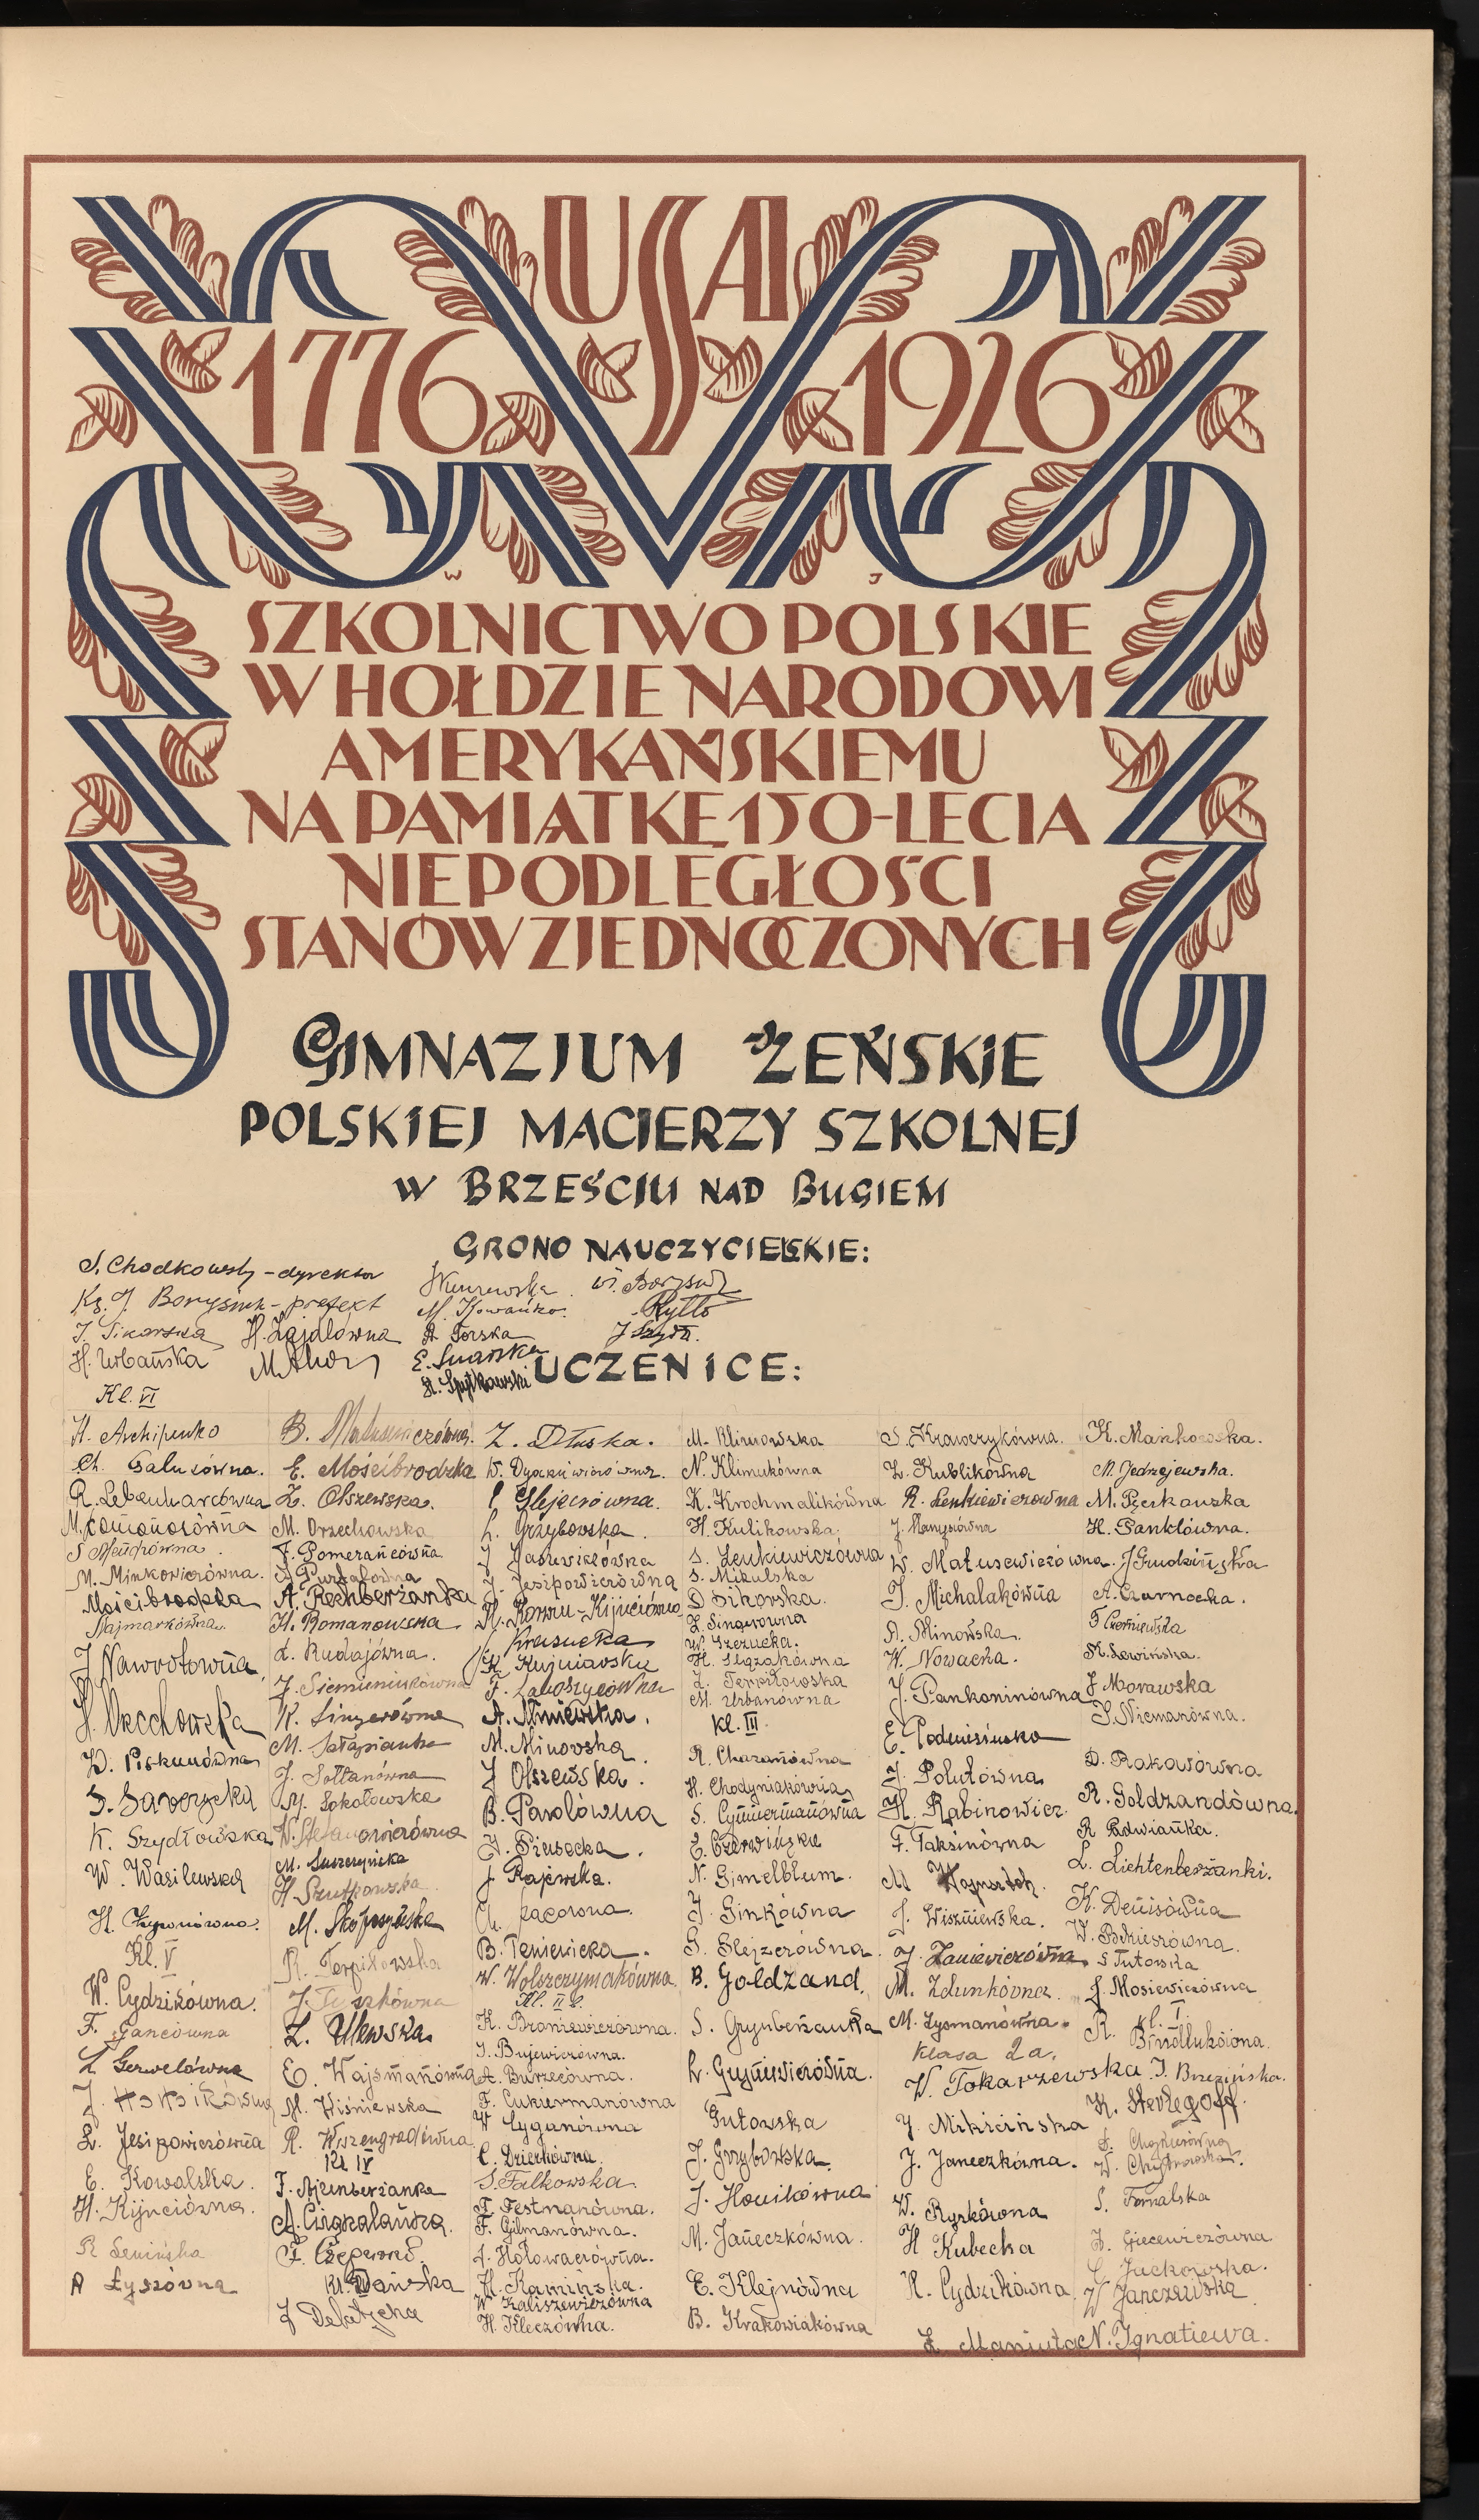 USA
1776 1926
W J
SZKOLNICTWO POLSKIE
W HOŁDZIE NARODOWI
AMERYKAŃSKIEMU
NA PAMIĄTKĘ 150-LECIA
NIEPODLEGŁOŚCI
STANÓW ZJEDNOCZONYCH
GIMNAZJUM ŻEŃSKIE
POLSKIEJ MACIERZY SZKOLNEJ
W BRZEŚCIU NAD BUGIEM
GRONO NAUCZYCIELSKIE:
S. Chodkowski - dyrektor
Ks. J. Borysiuk - prefekt
J. Sikorska
H. Urbańska
H. Zajdlówna
M. Kowańko.
A. Torska
E. Suarska
St. Spytkowski
Ryllo
UCZENICE:
Kl. VI
H. Archipenko
Ch. Galusówna.
R. Lebenharcówna
M. Łomonosówna
M. Minkowiczówna.
Mościbrodzka
Najmarkówna.
J. Nawrotówna
H. Orechowska
D. Piskunówna
S. Saworycka
K. Szydłowska
W. Wasilewska
H. Chywniówna.
Kl. V
W. Cydzikówna.
F. Gancówna
L Gerwelówna
L. Jesipowiczówna
E. Kowalska.
H. Kijuciózna.
R Lewińska
A Łyszówna
B. Matusewiczówna.
E. Mościbrodzka
Z. Olszewska.
M. Orzechowska
F. Pomerańcówna
A. Rechberżanka
H. Romanowska
L. Rudajówna.
J. Siemieniukówna
K. Singerówna
J. Sołtanówna
M. Sokołowska
W. Stefanowiczówna
M. Suszczyńska
H. Szutkowska
M. Skopczyńska
R. Terpiłowska
Z. Ulewska.
E. Wajsmanówna
M. Wiśniewska
R. Wyszengradówna
Kl IV
F. Ajzenberżanka
Kl. Dańska
J Delatycka
Z. Dłuska.
L. Grzybowska.
J. Jesipowiczówna
Krasucka
K. Kujniavska
F. Laboszycówna
A. Mniewska.
M. Minovska
J Olszewska.
B. Pawlówna
H. Piasecka.
J Rajewska.
B. Teniewicka.
W. Wolszczymakówna
Kl. II b.
K. Broniewiczówna.
J. Bujewiczówna.
A. Burzecówna.
F. Cukiermanówna
W Cyganówna
C. Dzierkówna.
S. Falkowska
F. Festmanówna.
F. Gilmanówna.
J. Hołowaczówna.
H. Kamińska.
W Kaliszewiczówna
H. Kleczówna.
M. Klimowska
N. Klimukówna
K. Krochmalikówna
H. Kulikowska.
S. Lenkiewiczówna
S. Mikulska
D Sikorska.
Z. Singerówna
W. Szczucka.
H. Ślązakówna
Z. Terpiłowska
M. Urbanówna
Kl. III.
R. Chazanówna
H. Chodyniakówna
S. Cymmermanówna
E. Czerwińska
N. Gimelblum.
J. Ginkówna
G. Glejzerówna.
B. Goldzand.
S. Grynberżanka
L. Gryniewiczówna.
Gutowska
J. Grzybowska.
J. Honikówna
M. Janeczkówna.
E. Klejnówna
B. Krakowiakówna
S. Krawczykówna.
Z. Kublikówna
R. Lenkiewiczowna
W. Matusewiczówna.
J. Michalakówna
A. Minowska.
W. Nowacka.
J. Pankoninówna
J. Polutówna
H. Rabinowicz.
F. Taksinówna
J. Wiszniewska.
J. Zaniewiczówna
M. Zdunkówna.
M. Zysmanówna.
Klasa 2a.
W. Tokarzewska
J. Mikicińska
J. Janeczkówna.
W. Ryrkówna
H Kubecka
H. Cydzikówna
Z. Maniuta
K. Mańkowska.
M. Jędrzejewska.
M. Pierkowska
H. Panklówna.
J Grudzińska
A. Czarnocka.
K. Lewińska.
J Morawska
S. Niemanówna.
D. Rakowówna
R. Goldzandówna.
R Radwianka.
L. Lichtenberżanki.
K. Denisówna
S Tutowska
J. Mosiewiczówna
kl. I.
J. Brzezińska.
K. Sterlegoff
S. Fornalska
Z. Giecewiczówna
C Juckowska.
W Janczewska
N. Ignatiewa.